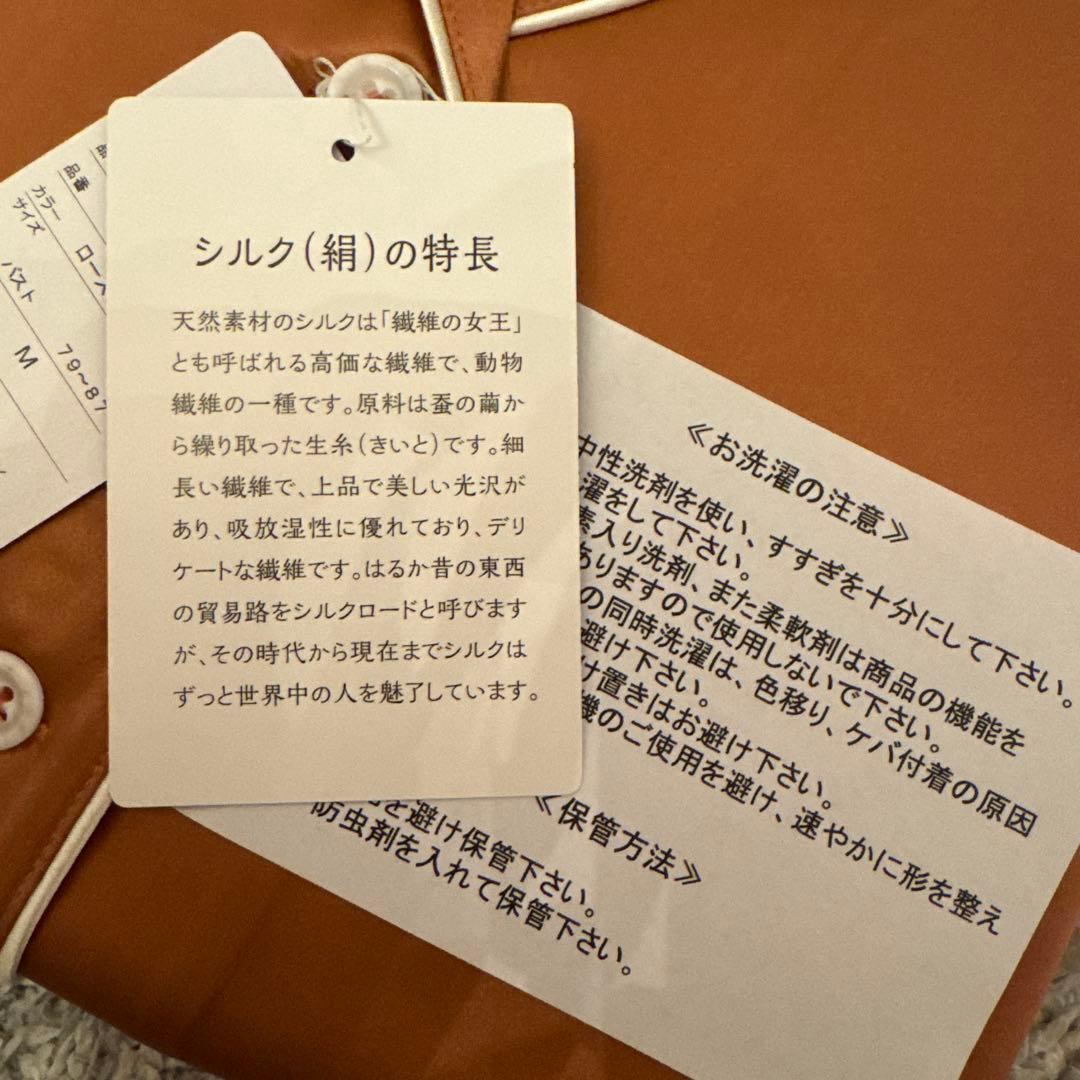 シルク(絹)の特長
天然素材のシルクは「繊維の女王」
とも呼ばれる高価な繊維で、動物
繊維の一種です。原料は蚕の繭か
ら繰り取った生糸(きいと)です。細
長い繊維で、上品で美しい光沢が
あり、吸放湿性に優れており、デリ
ケートな繊維です。はるか昔の東西
の貿易路をシルクロードと呼びます
が、その時代から現在までシルクは
ずっと世界中の人を魅了しています。
品番
カラー
ロー
サイズ
バスト
79~87
M
≪お洗濯の注意≫
中性洗剤を使い、すすぎを十分にして下さい。
濯をして下さい。
素入り洗剤、また柔軟剤は商品の機能を
ありますので使用しないで下さい。
の同時洗濯は、色移り、ケバ付着の原因
避け下さい。
け置きはお避け下さい。
機のご使用を避け、速やかに形を整え
≪保管方法≫
を避け保管下さい。
防虫剤を入れて保管下さい。